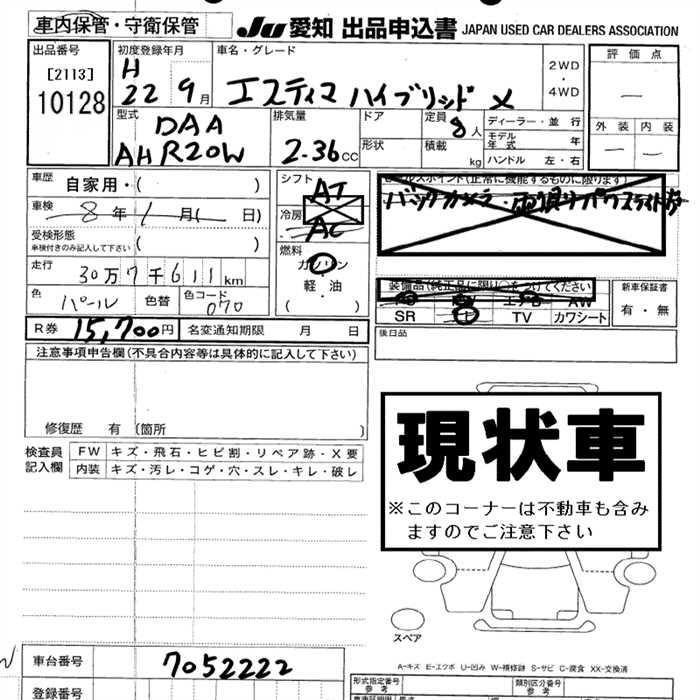 車内保管・守衛保管
JU 愛知 出品申込書 JAPAN USED CAR DEALERS ASSOCIATION
出品番号
[2113]
10128
初度登録年月
H
22 9月
車名・グレード
エスティマ ハイブリッド X
2WD
・
4WD
評価点
—
外装 内装
— —
型式
DAA
AHR20W
排気量
2.36cc
ドア
形状
定員 8人
積載 kg
ディーラー・並行
モデル年式 年
ハンドル 左・右
車歴 自家用・( )
車検 8年 1月( 日)
受検形態
車検付きのみ記入して下さい ( )
走行 30万7千611km
色 パール 色替 色コード 070
シフト AT
冷房 AC
燃料
ガソリン
・
軽・油
( )
セールスポイント(正常に機能するものに限ります)
バックカメラ・両側パワースライドドア
装備品(純正品に限り○をつけてください
SR TV カワシート
新車保証書
有・無
R券 15,700円 名変通知期限 月 日
後日品
注意事項申告欄(不具合内容等は具体的に記入して下さい)
修復歴 有 (箇所 )
検査員
記入欄
FW キズ・飛石・ヒビ割・リペア跡・X要
内装 キズ・汚レ・コゲ・穴・スレ・キレ・破レ
現状車
※このコーナーは不動車も含み
ますのでご注意下さい
スペア
A-キズ E-エクボ U-凹み W-補修跡 S-サビ C-腐食 XX-交換済
車台番号 7052222
登録番号
形式指定番号
参考
類別区分番号
参考